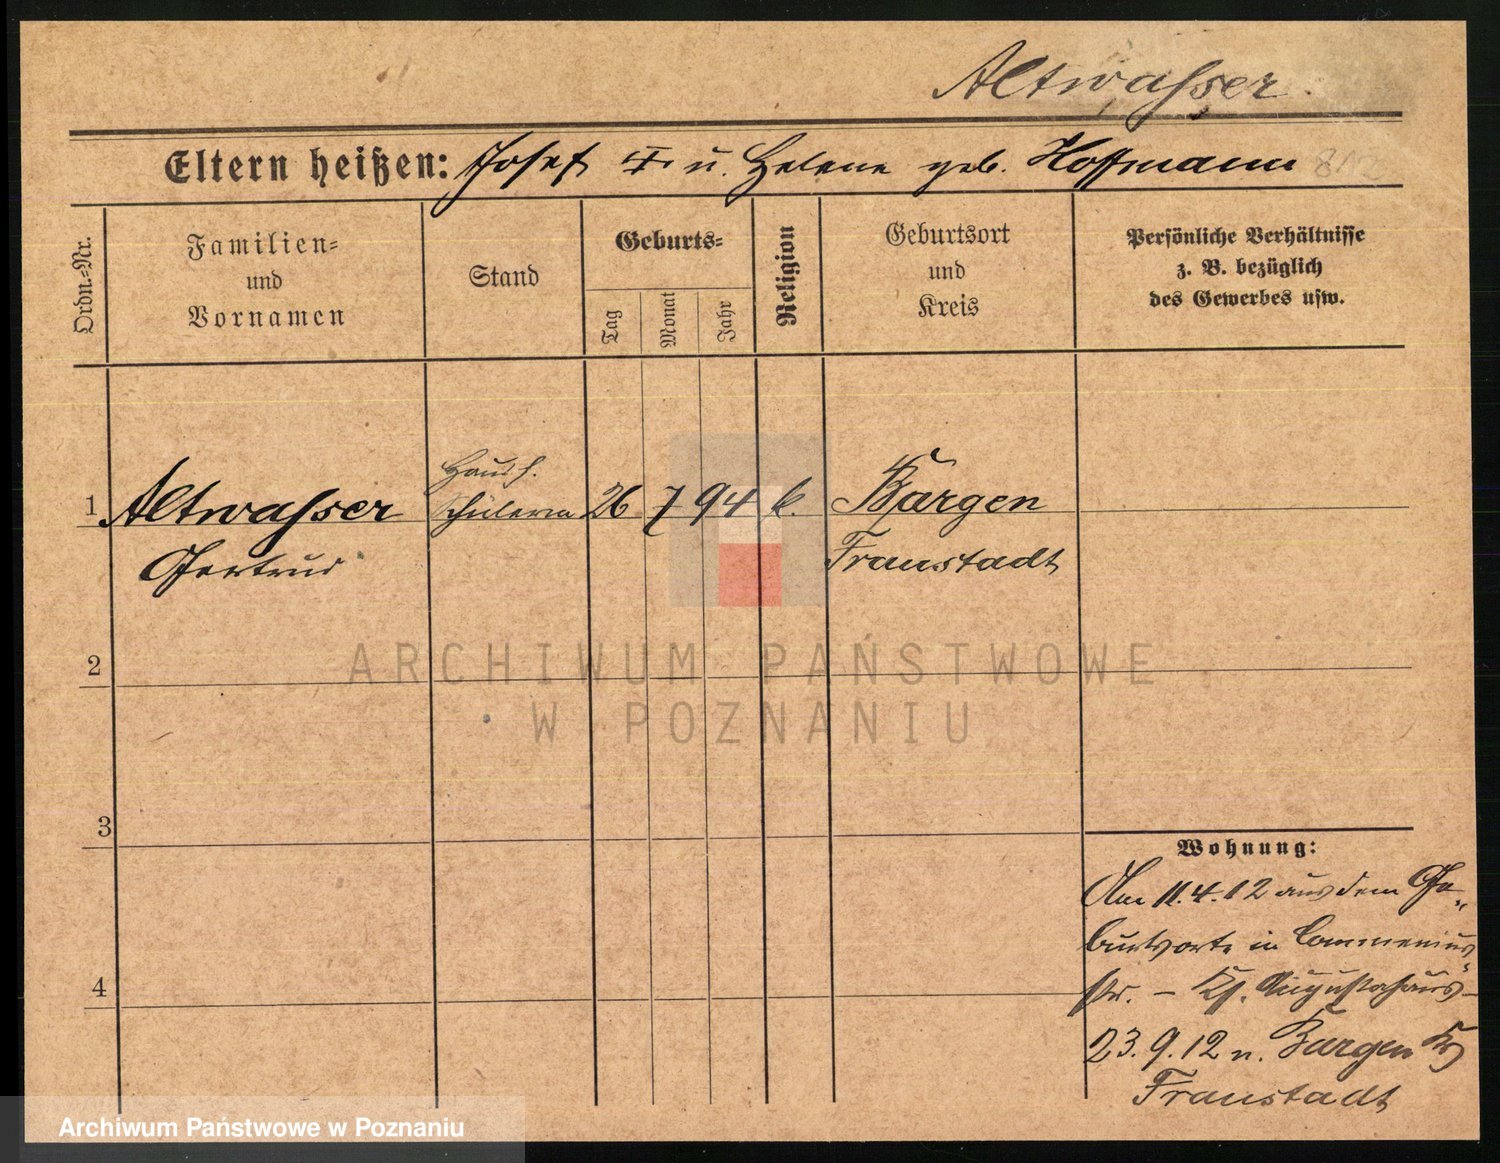 Altwasser.
Eltern heißen: Josef u. Helene geb. Hoffmann 812
Ordn.=Nr.
Familien=
und
Vornamen
Stand
Geburts=
Tag
Monat
Jahr
Religion
Geburtsort
und
Kreis
Persönliche Verhältnisse
z. B. bezüglich
des Gewerbes usw.
1 Altwasser
Gertrud
Haush.
Schülerin
26 7 94 k.
Bargen
Fraustadt
2
3
4
Wohnung:
Am 11.4.12 aus dem Ge„
burtsorte in Commenius
str. – Augustahaus –
23.9.12 n. Bargen Kr
Fraustadt
ARCHIWUM PAŃSTWOWE
W POZNANIU
Archiwum Państwowe w Poznaniu